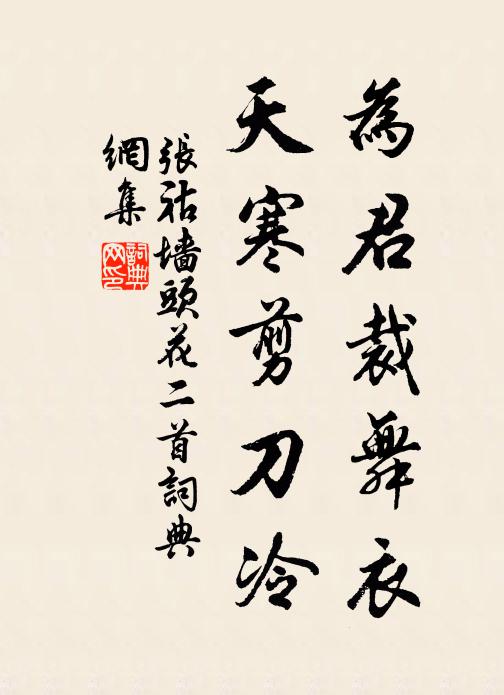 為君裁舞衣
天寒剪刀冷
張祜墙頭花二首詞典
網集
詞典
网印